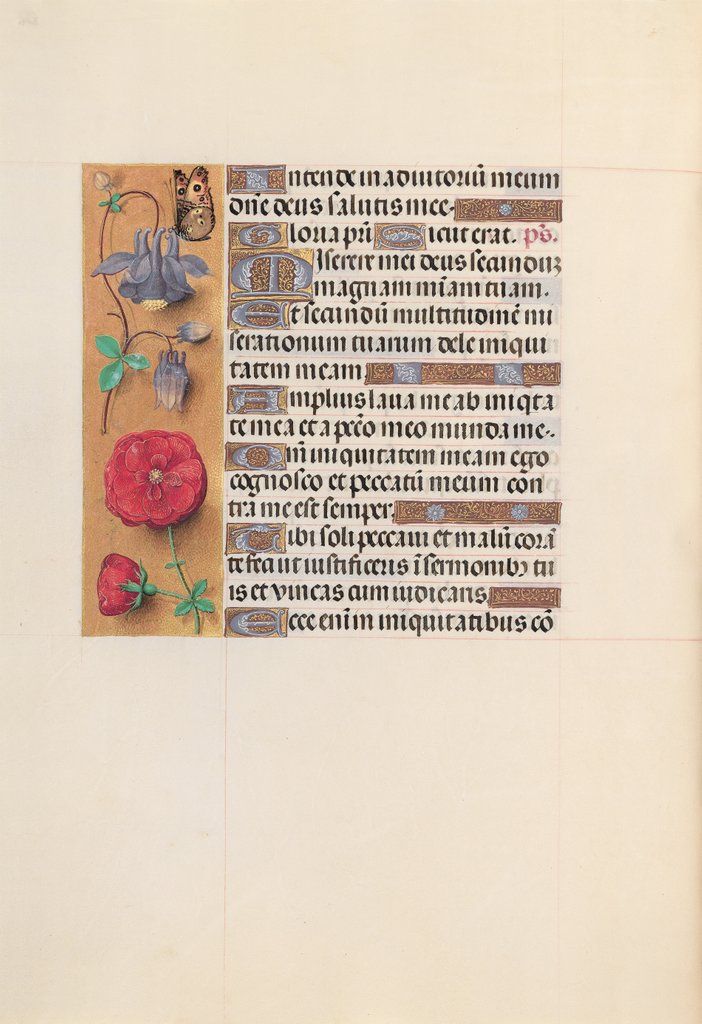 Intende in adiutoriū meum
dn̄e deus salutis mee.
Gloria pr̄i Sicut erat. ps̄.
Miserere mei deus secundūz
magnam mīam tuam.
Et secundū multitudinē mi
serationum tuarum dele iniqui
tatem meam
Amplius laua me ab iniq̄ta
te mea et a pctō meo munda me.
Qm̄ iniquitatem meam ego
cognosco et peccatū meum con
tra me est semper
Tibi soli peccaui et malū corā
te feci ut iustificeris ī sermonibꝫ tu
is et vincas cum iudicaris
Ecce enim in iniquitatibus cō